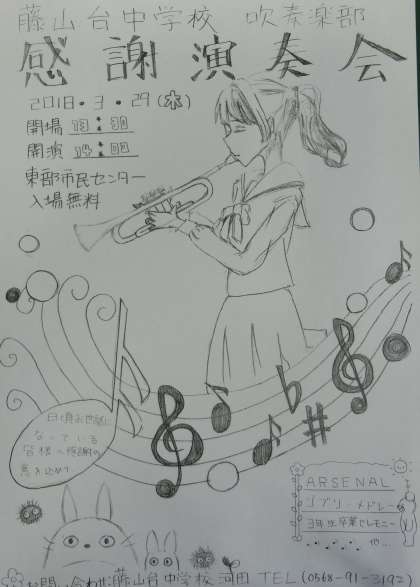 藤山台中学校 吹奏楽部
感謝演奏会
2018・3・29(木)
開場 13:30
開演 14:00
東部市民センター
入場無料
日頃お世話に
なっている
皆様へ感謝の
意を込めて
ARSENAL
ジブリ・メドレー
3年生卒業セレモニー
他…
お問い合わせ:藤山台中学校 河田 TEL (0568-91-3192)